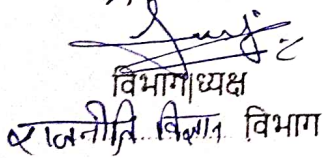 विभागाध्यक्ष
राजनीति विज्ञान विभाग